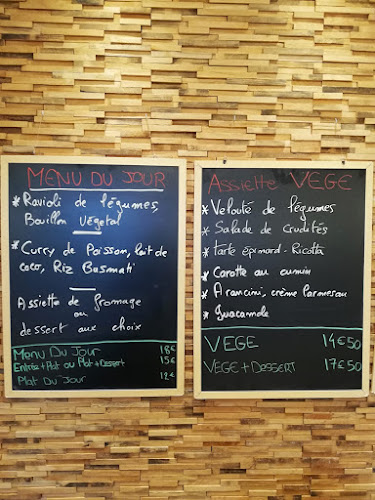 MENU DU JOUR
* Ravioli de légumes,
Bouillon Végétal
* Curry de Poisson, lait de
coco, Riz Basmati
Assiette de fromage
ou
dessert aux choix
Menu Du Jour 18€
Entrée+Plat ou Plat+Dessert 15€
Plat Du Jour 12€
Assiette VEGE
* Velouté de légumes
* Salade de crudités
* Tarte épinard - Ricotta
* Carotte au cumin
* Arancini, crème Parmesan
* Guacamole
VEGE 14€50
VEGE + DESSERT 17€50